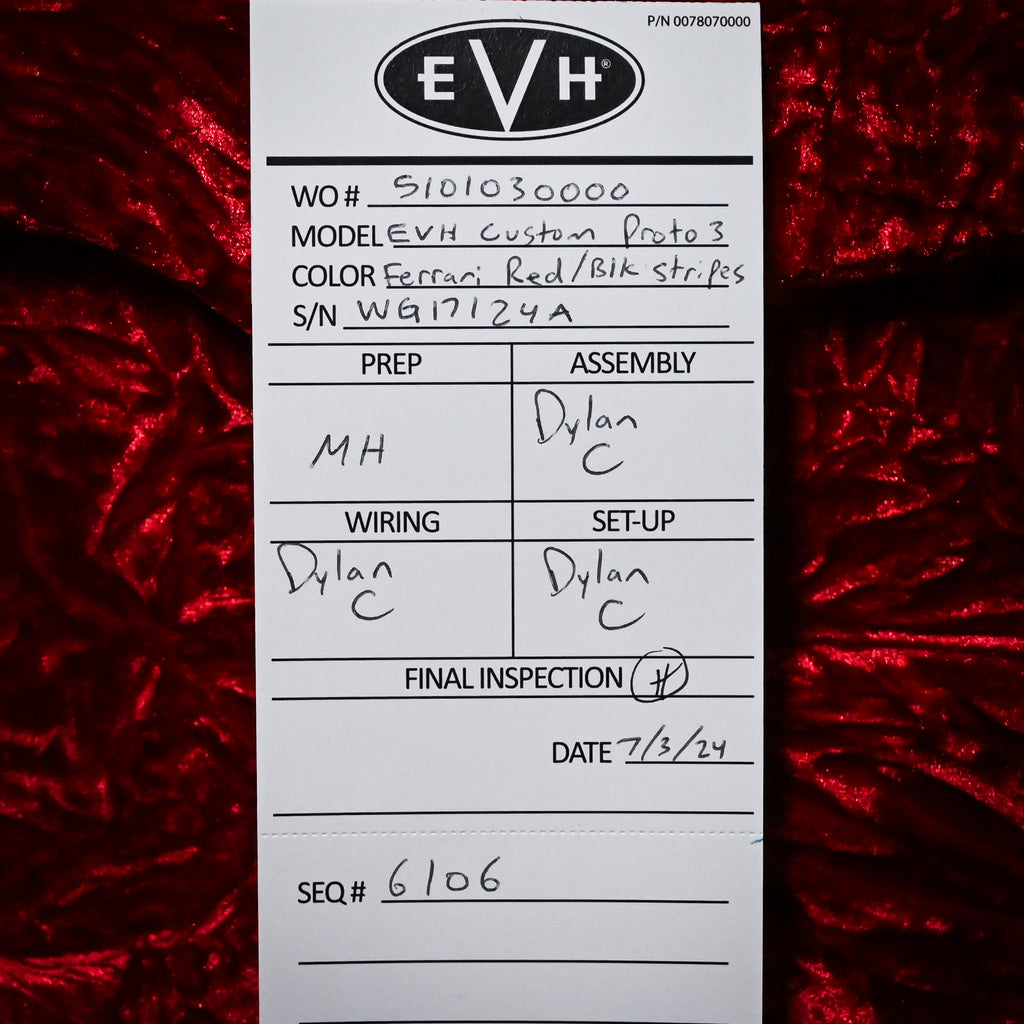 P/N 0078070000
EVH®
WO # 5101030000
MODEL EVH Custom Proto 3
COLOR Ferrari Red/Blk stripes
S/N WG17124A
PREP ASSEMBLY
MH Dylan C
WIRING SET-UP
Dylan C Dylan C
FINAL INSPECTION H
DATE 7/3/24
SEQ # 6106